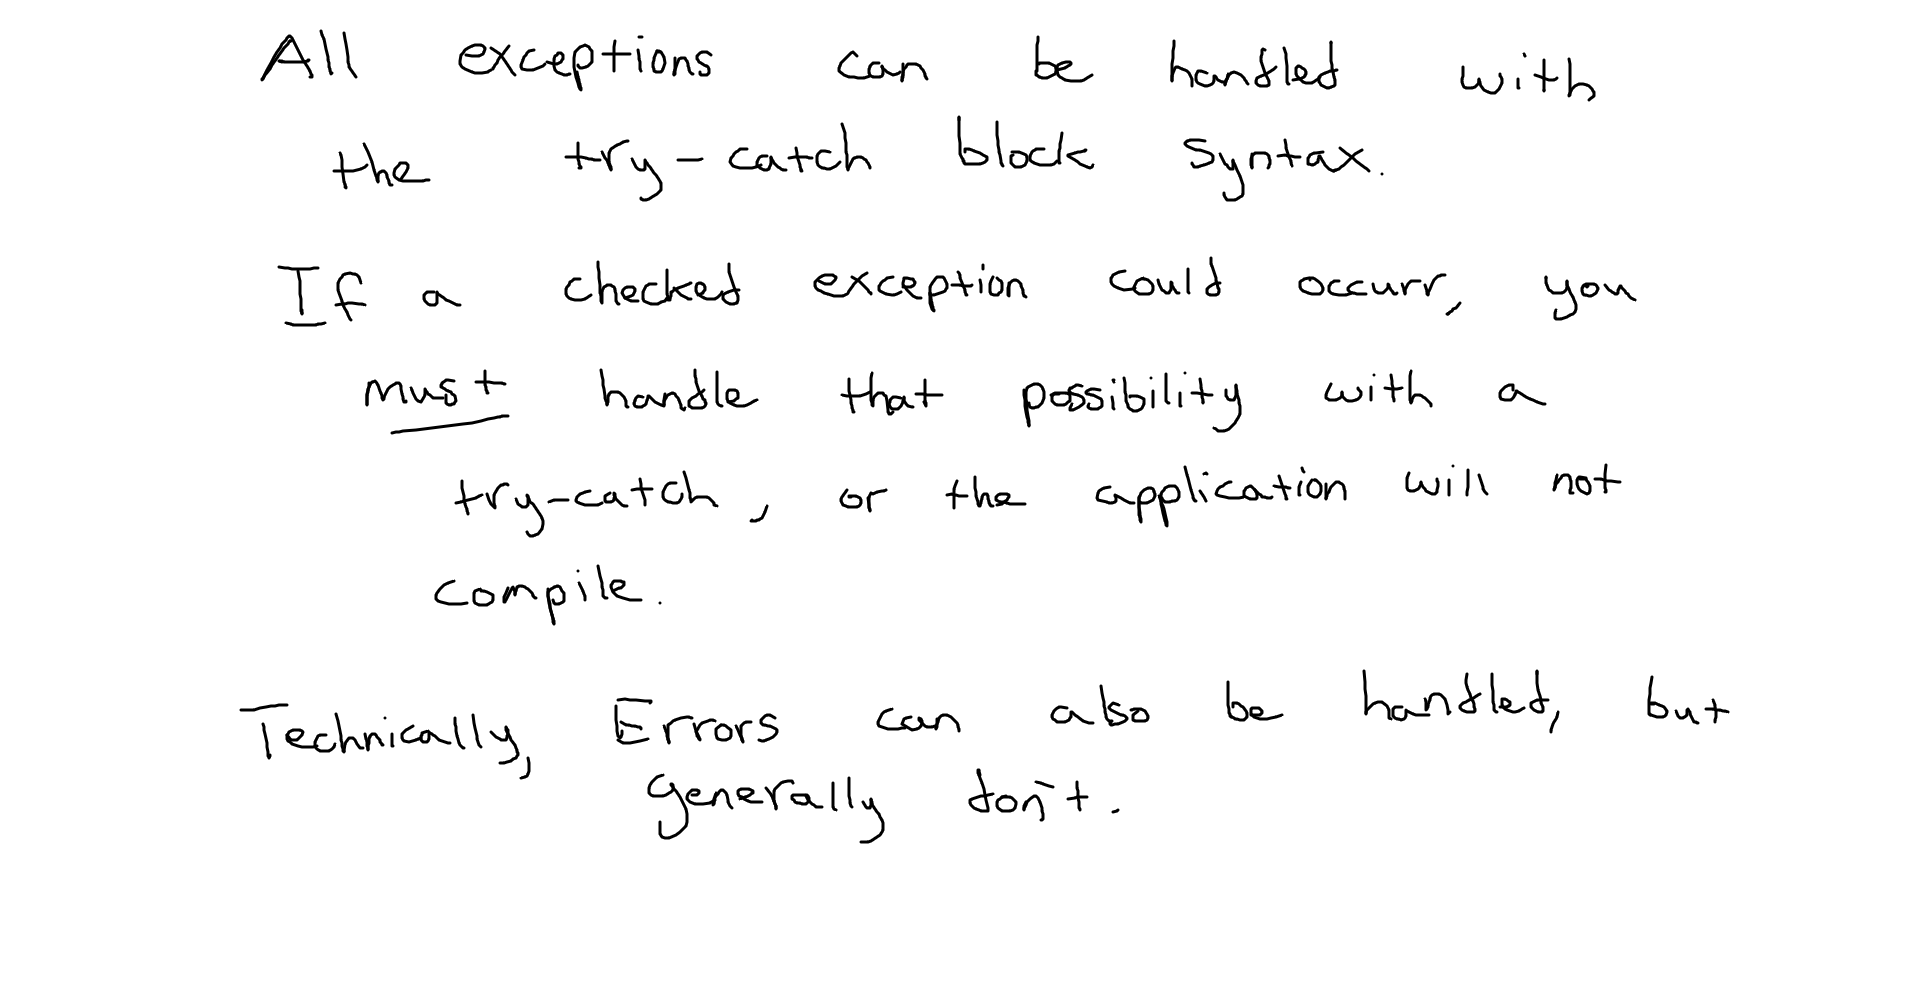 All exceptions can be handled with
the try-catch block syntax.
If a checked exception could occurr, you
must handle that possibility with a
try-catch, or the application will not
compile.
Technically, Errors can also be handled, but
generally don't.